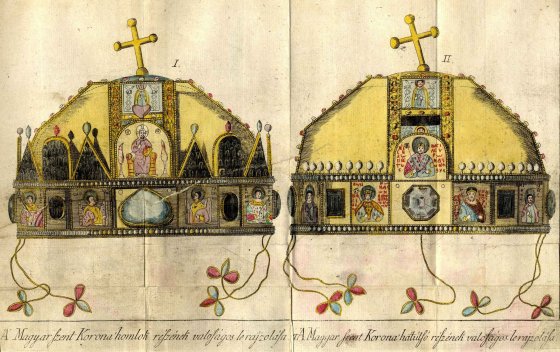 I.
II
A' Magyar szent Korona homlok részének valoságos le rajzolása
A Magyar szent Korona hátulsó részének valoságos le rajzolása